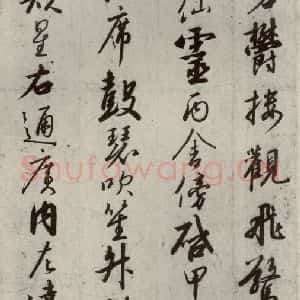 鬱樓觀飛驚
仙靈丙舍傍啟甲
席鼓瑟吹笙升
疑星右通廣內左達
Shufawang.Cn